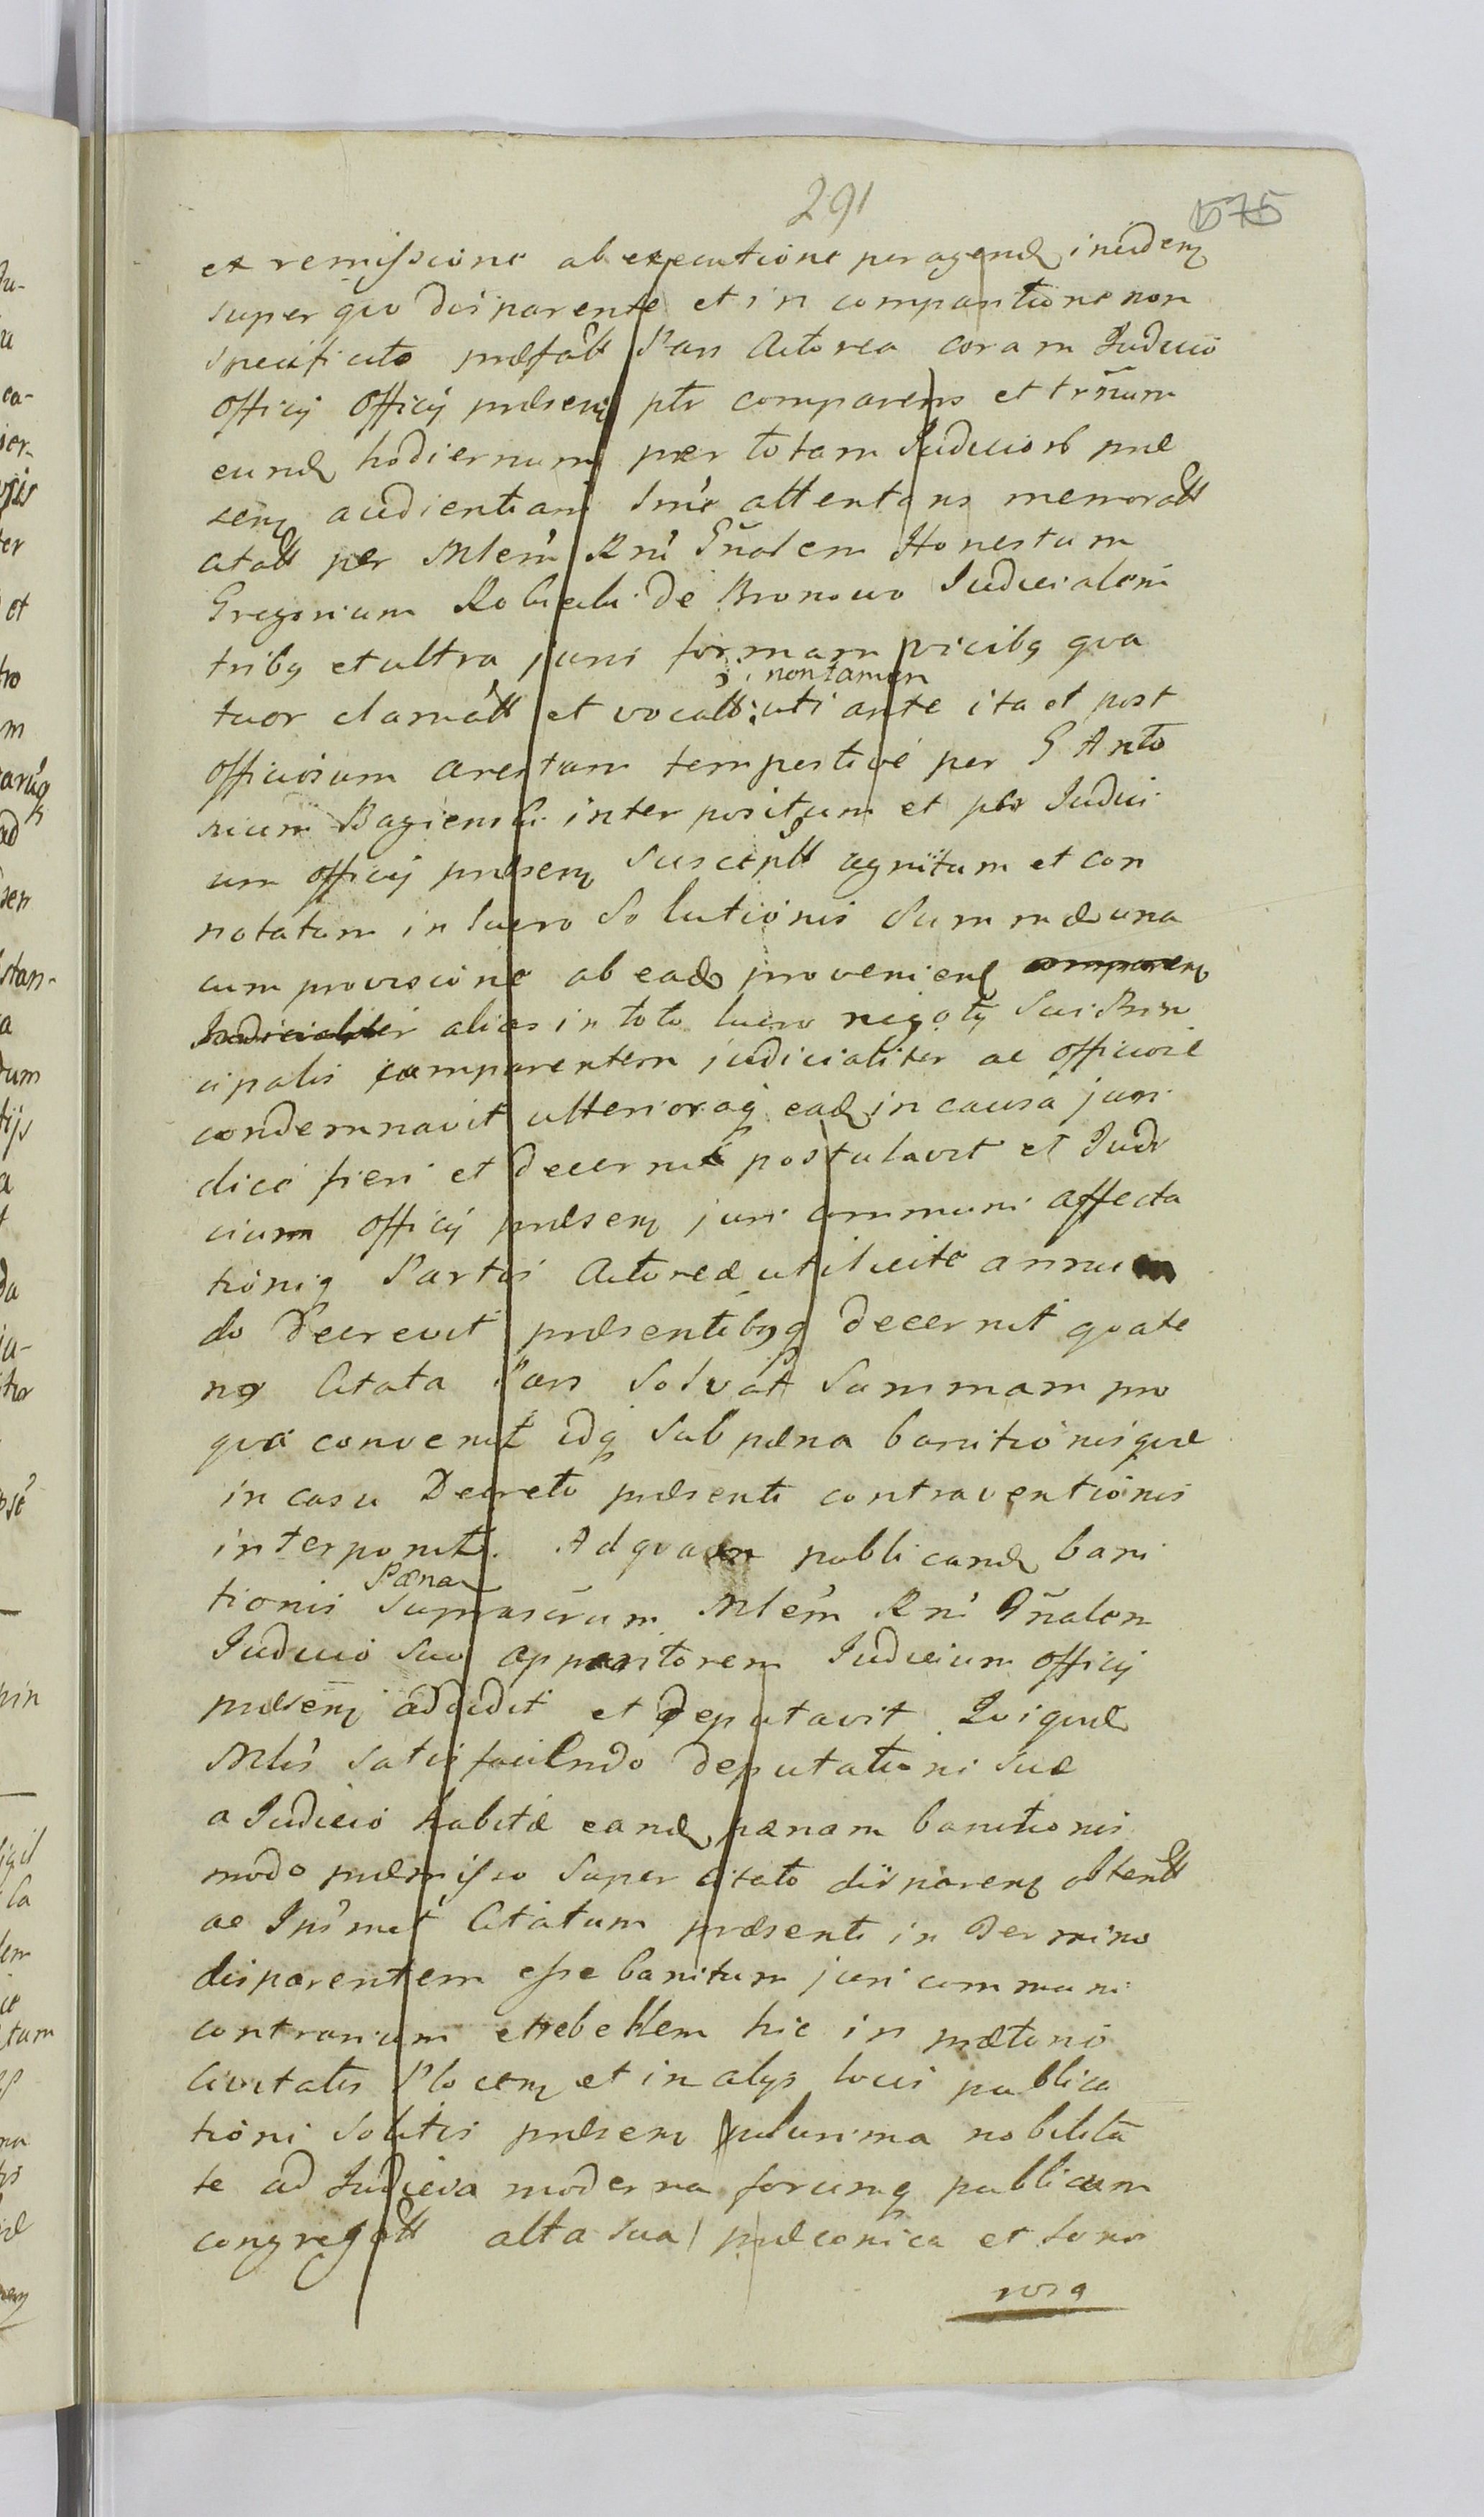 291
575
et remissione ab executione peragend incidenq
super quo disparente et in comparitione non
specificato præfatt Pars Actorea coram Judicio
Officij Officij præsenq ptr comparens et trnum
eund hodiernum per totam Judicior præ
senq audientiam attentans memoratt
citatt per Mlem Rni Gnalem Honestum
Gregorium de Bronowo Judicialem
tribq et ultra juris formam vicibq qua
non tamen
tuor clamatt et vocatt uti ante ita et post
officiosum arestum tempestive per G Anto
nium interpositum et per Judici
um officij præsenq suscept agnitum et con
notatum in lucro Solutionis Summæ una
cum provisione ab ead provenienq comparenq
Judicialiter alias in toto lucro negotij sui Prin
cipalis comparentem judicialiter ac officiose
condemnavit ulterioraq ead in causa juri
dice fieri et decerni postulavit et Judi
cium officij præsenq juri communi affecta
tioniq Partis Actoreæ uti licite annuen
do decrevit præsentibqq decernit quate
nq Citata Pars solvat Summam pro
qua convenit idq sub pæna banitionis quæ
in casu Decreto præsenti contraventionis
interponit. Ad quam publicand bani
Pænam
tionis suprascrum Mlem Rni Gnalem
Judicio suo apparitorem Judicium officij
præsenq addidit et deputavit Qui quid
Mlis satisfaciendo deputationi suæ
a Judicio habitæ eand pænam banitionis
modo præmisso super citato disparenq obtentt
ac Ipsmet Citatum præsenti in Termino
disparentem esse banitum juri communi
contrarium et rebellem hic in prætorio
Civitatis Plocenq et in alijs locis publica
tioni solitis præsenq plurima nobilita
te ad Judicia moderna forumq publicum
congregatt alta sua præconica et sono
rosa